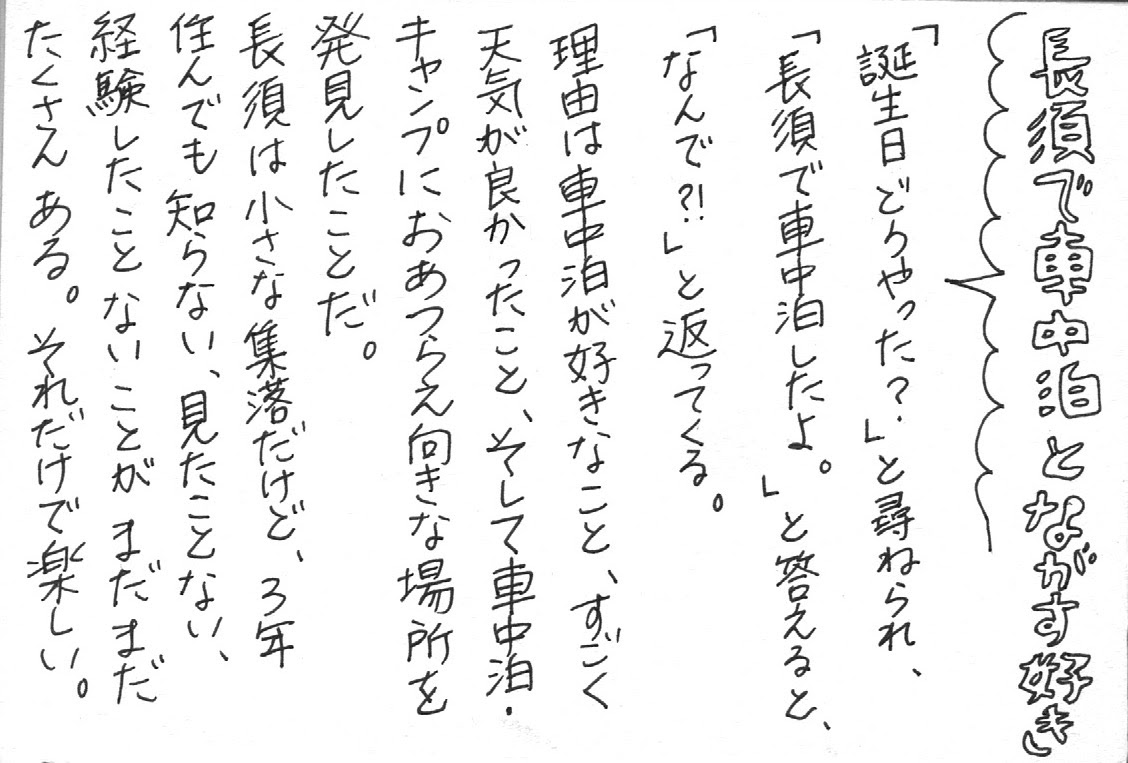 長須で車中泊とながす好き
「誕生日どうやった？」と尋ねられ、
「長須で車中泊したよ。」と答えると、
「なんで?!」と返ってくる。
理由は車中泊が好きなこと、すごく
天気が良かったこと、そして車中泊・
キャンプにおあつらえ向きな場所を
発見したことだ。
長須は小さな集落だけど、3年
住んでも知らない、見たことない、
経験したことないことがまだまだ
たくさんある。それだけで楽しい。